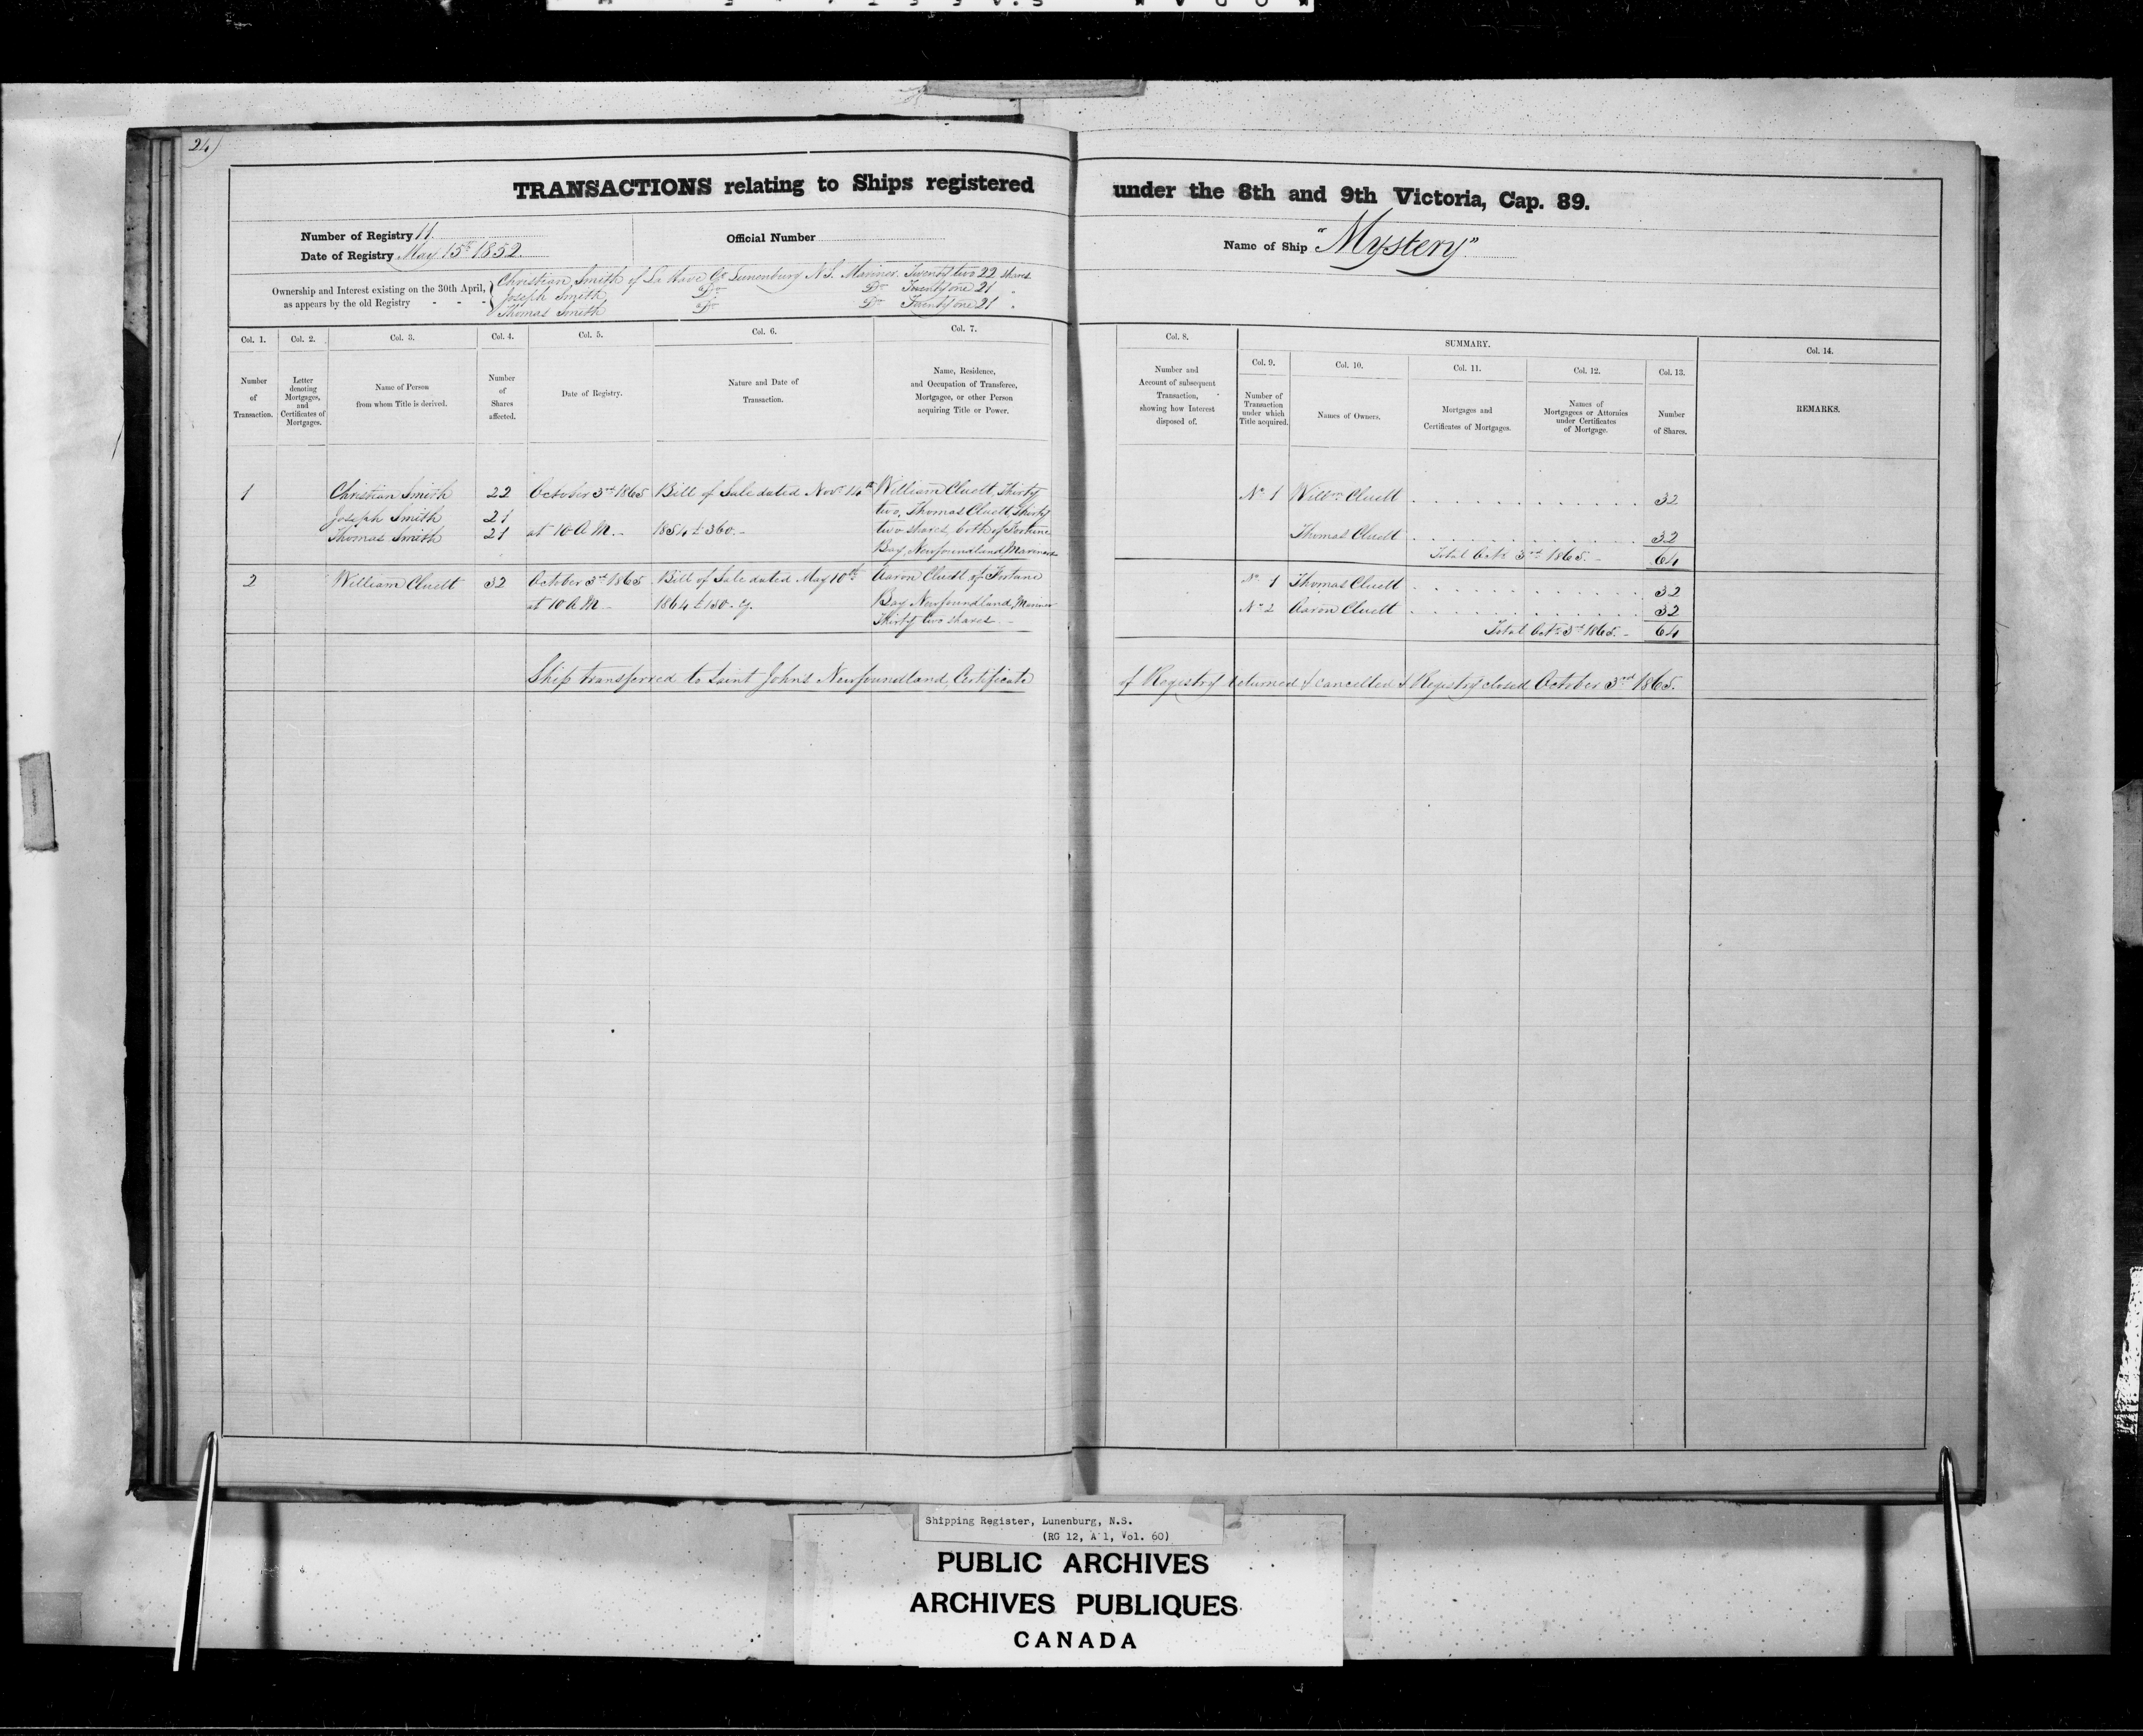 24
TRANSACTIONS relating to Ships registered under the 8th and 9th Victoria, Cap. 89.
Number of Registry 11.
Date of Registry May 15th 1852.
Official Number
Name of Ship "Mystery"
Ownership and Interest existing on the 30th April, as appears by the old Registry - - -
Christian Smith of La Have Co. Lunenburg N.S. Mariner. Twenty two 22 shares
Joseph Smith Do Do Twenty one 21 "
Thomas Smith Do Do Twenty one 21 "
Col. 1. Number of Transaction.
Col. 2. Letter denoting Mortgages, and Certificates of Mortgages.
Col. 3. Name of Person from whom Title is derived.
Col. 4. Number of Shares affected.
Col. 5. Date of Registry.
Col. 6. Nature and Date of Transaction.
Col. 7. Name, Residence, and Occupation of Transferee, Mortgagee, or other Person acquiring Title or Power.
Col. 8. Number and Account of subsequent Transaction, showing how Interest disposed of.
SUMMARY.
Col. 9. Number of Transaction under which Title acquired.
Col. 10. Names of Owners.
Col. 11. Mortgages and Certificates of Mortgages.
Col. 12. Names of Mortgagees or Attornies under Certificates of Mortgage.
Col. 13. Number of Shares.
Col. 14. REMARKS.
1 Christian Smith 22 October 3rd 1865 Bill of Sale dated Novr 14th William Cluett, Thirty No 1 Willm Cluett 32
Joseph Smith 21 two, Thomas Cluett, Thirty
Thomas Smith 21 at 10 A.M. - 1854 £360. - two shares, both of Fortune Thomas Cluett 32
Bay, Newfoundland Mariners Total Octr 3rd 1865. - 64
2 William Cluett 32 October 3rd 1865 Bill of Sale dated May 10th Aaron Cluett of Fortune No 1 Thomas Cluett 32
at 10 A.M - 1864 £130. Cy. Bay Newfoundland, Mariner No 2 Aaron Cluett 32
Thirty two shares. - Total Octr 3rd 1865. - 64
Ship transferred to Saint Johns Newfoundland, Certificate of Registry returned & cancelled & Registry closed October 3rd 1865.
Shipping Register, Lunenburg, N.S.
(RG 12, A 1, Vol. 60)
PUBLIC ARCHIVES
ARCHIVES PUBLIQUES
CANADA